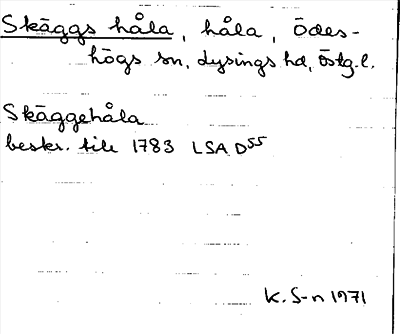 Skäggs håla, håla, Ödes-
högs sn, Lysings hd, Östg.l.
Skäggehåla
beskr. till 1783 LSA D55
K. S-n 1971